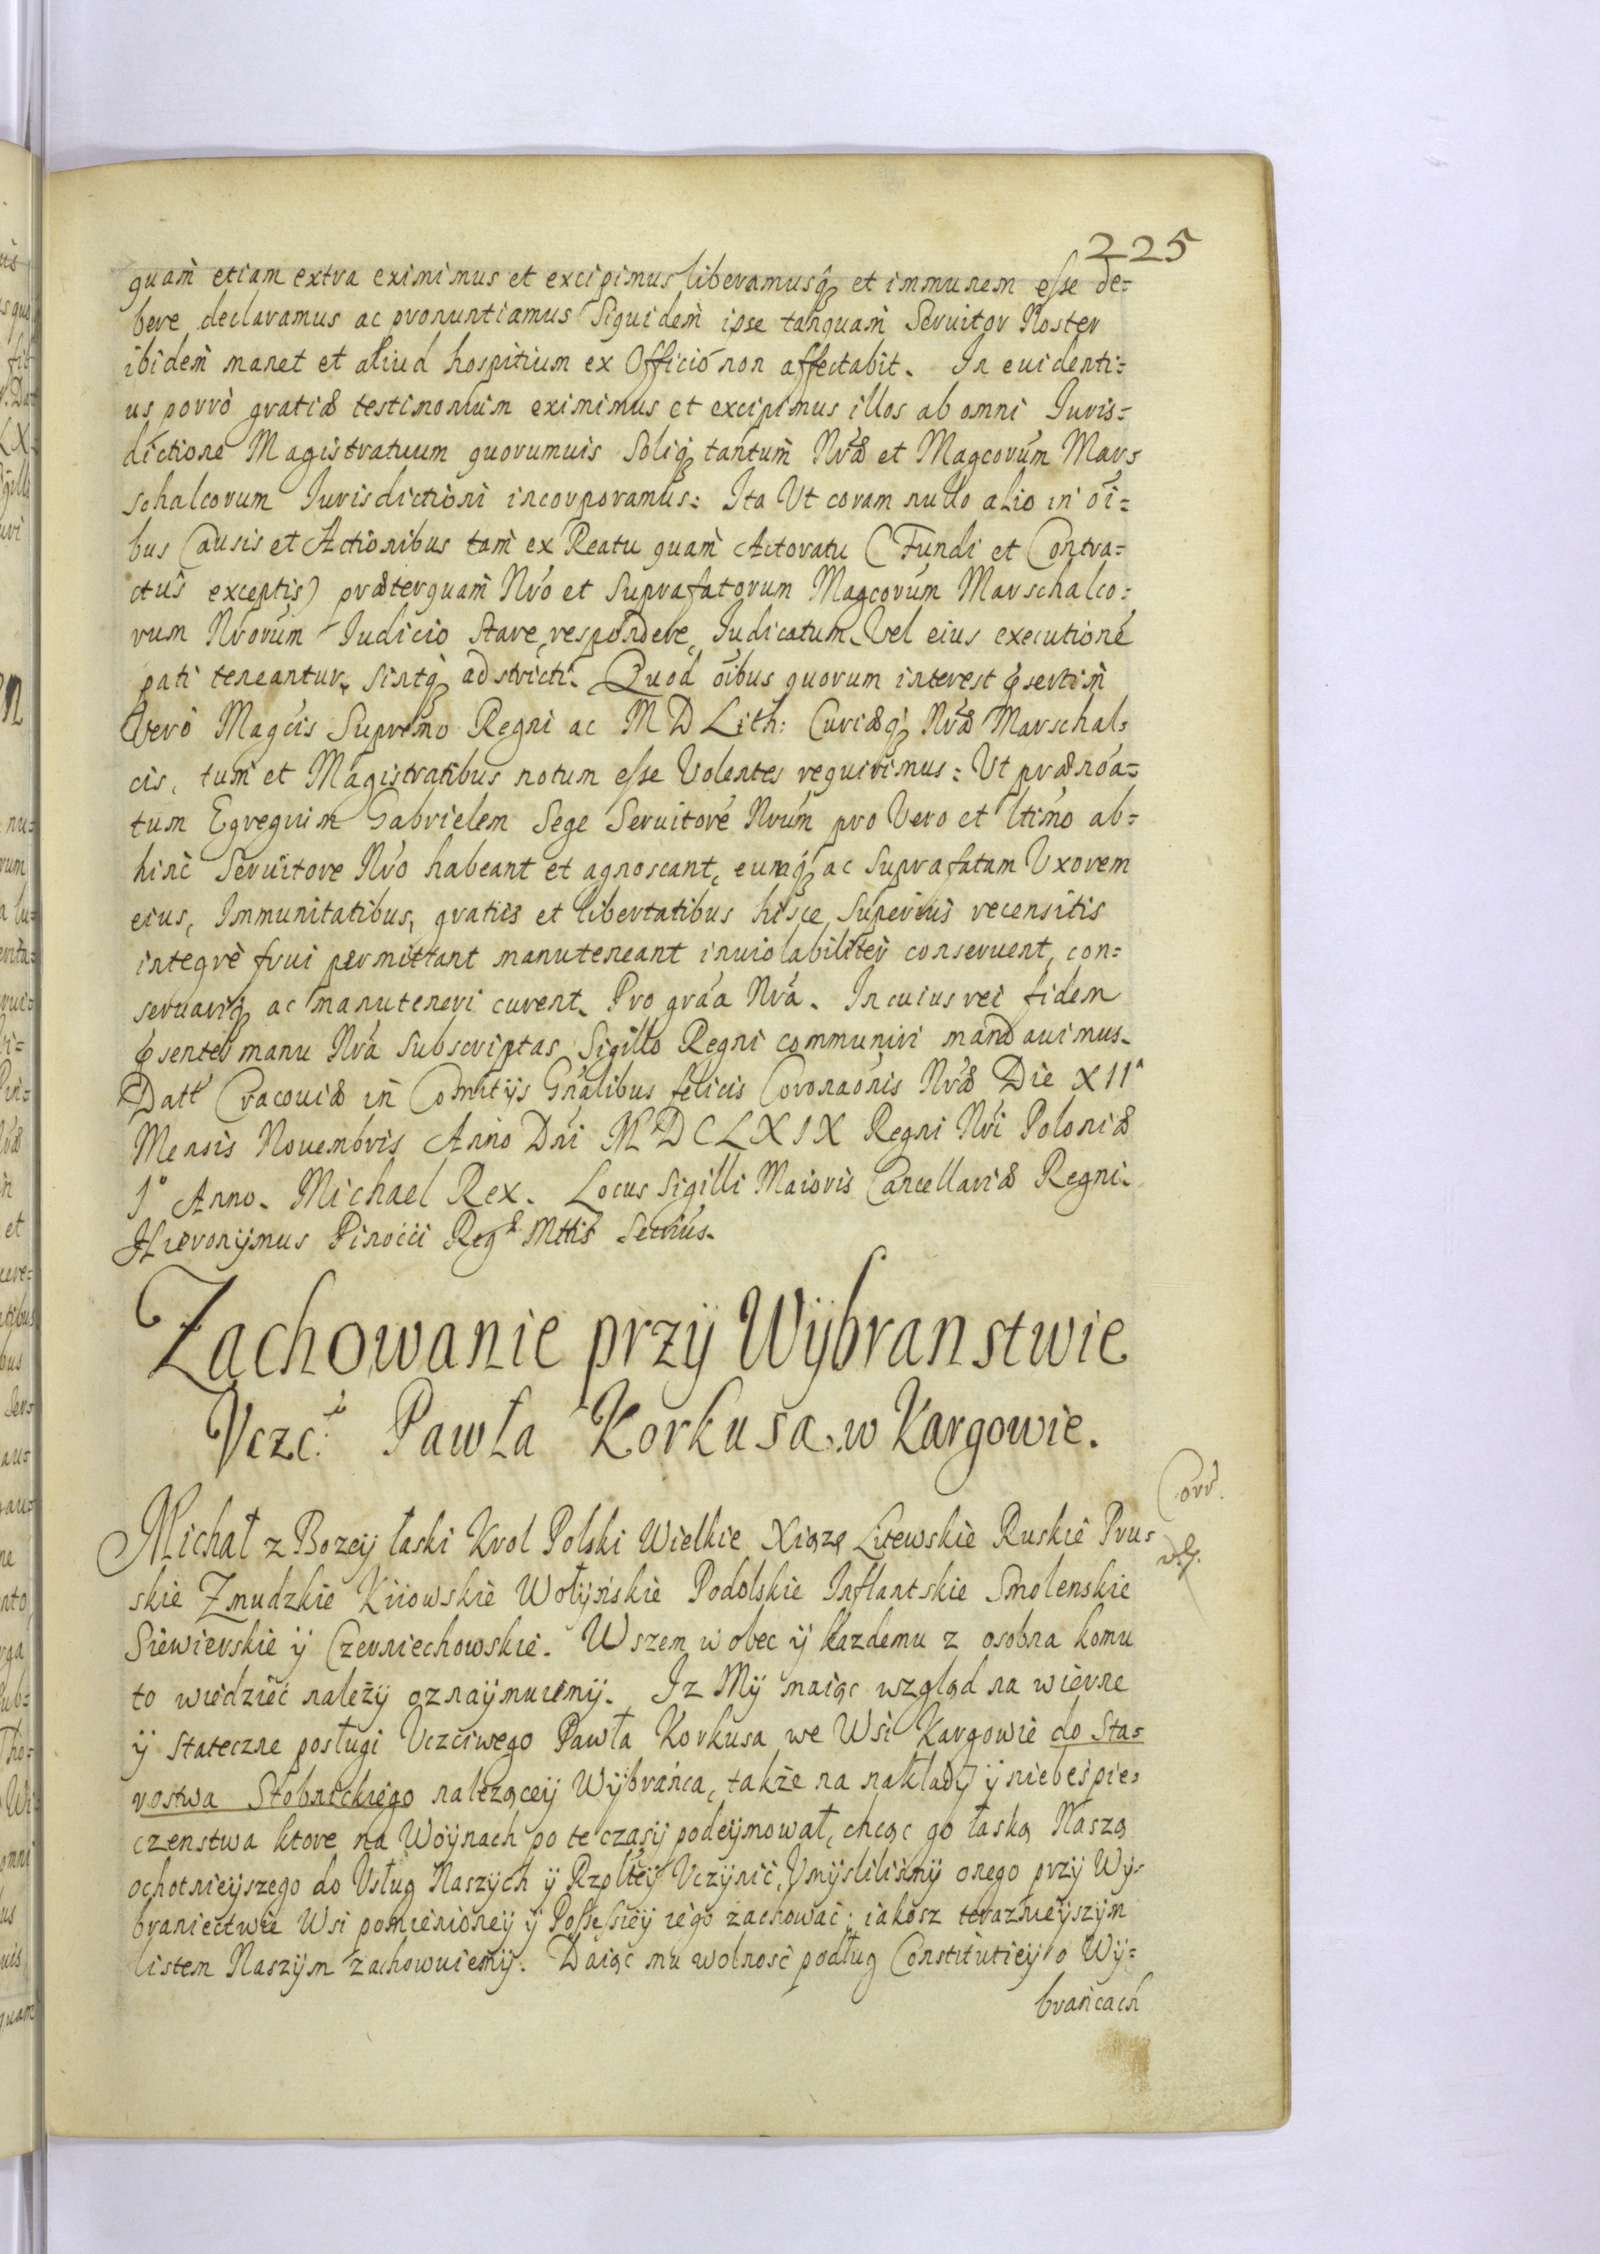 225
quam̀ etiam extra eximimus et excipimus liberamusq et immunem esse de=
bere declaramus ac pronuntiamus Siquidem̀ ipse tanquam̀ Seruitor Noster
ibidem̀ manet et aliud hospitium ex Officiò non affectabit. In euidenti=
us porrò gratiæ testimonium eximimus et excipimus illos ab omni Iuris=
dictione Magistratuum quorumuis Soliq tantum̀ Nræ et Magcorum Mar=
schalcorum Iurisdictioni incorporamus: Ita Vt coram nullo alio in oi=
bus Causis et Actionibus tam̀ ex Reatu quam̀ Actoratu (Fundi et Contra=
ctus exceptis) præterquam̀ Nrò et Suprafatorum Magcorum Marschalco=
rum Nrorum Iudicio stare, respondere, Iudicatum Vel eius executione
pati teneantur, sintq adstricti. Quod oibus quorum interest psertim̀
Verò Magcis Supremo Regni ac M D Lith: Curiæq Nræ Marschal=
cis, tum̀ et Magistratibus notum esse Volentes requirimus: Ut prænoa=
tum Egregium Gabrielem Sege Seruitore Nrum pro Vero et ltimo ab=
hinc Seruitore Nro habeant et agnoscant, eumq ac Suprafatam Vxorem
eius, Immunitatibus, gratiis et libertatibus hisce, Superius recensitis
integrè frui permittant manuteneant inuiolabiliter conseruent, con=
seruariq ac manuteneri curent. Pro graa Nra. In cuius rei fidem
psentes manu Nra Subscriptas Sigillo Regni communiri mandauimus.
Datt Cracouiæ in Comitijs Gnalibus felicis Coronaonis Nræ Die XIIa
Mensis Nouembris Anno Dni MDCLXIX Regni Nri Poloniæ
1o Anno. Michael Rex. Locus Sigilli Maioris Cancellariæ Regni.
Hieronijmus Pinocci Reg Mttis Secrius.
Zachowanie przÿ Wÿbranstwie
Vczc. Pawła Korkusa. w Kargowie.
Corr.
Michał z Bozey łaski Krol Polski Wielkie Xiązę Litewskie Ruskie Prus
skie Zmudzkie Kiiowskie Wołÿńskie Podolskie Inflantskie Smolenskie
Siewierskie ÿ Czerniechowskie. Wszem wobec ÿ każdemu z osobna komu
to wiedzieć należÿ oznaÿmuiemÿ. Iz Mÿ maiąc wzgląd na wierne
ÿ stateczne posługi Vczciwego Pawła Korkusa we Wsi Kargowie do Sta=
rostwa Stobnickiego nalezącey Wÿbrańca, także na nakładÿ ÿ niebespie=
czenstwa ktore na Woÿnach po te czasÿ podeÿmował, chcąc go łaską Naszą
ochotnieÿszego do Vsług Naszÿch ÿ Rzpltey Vczÿnić, Vmÿslilismÿ onego przÿ Wÿ=
braniectwie Wsi pomienioneÿ ÿ Possessiey iego zachowac: iakosz teraznieÿszÿm
listem Naszÿm zachowuiemÿ. Daiąc mu wolnosć podług Constitucieÿ o Wÿ=
brańcach